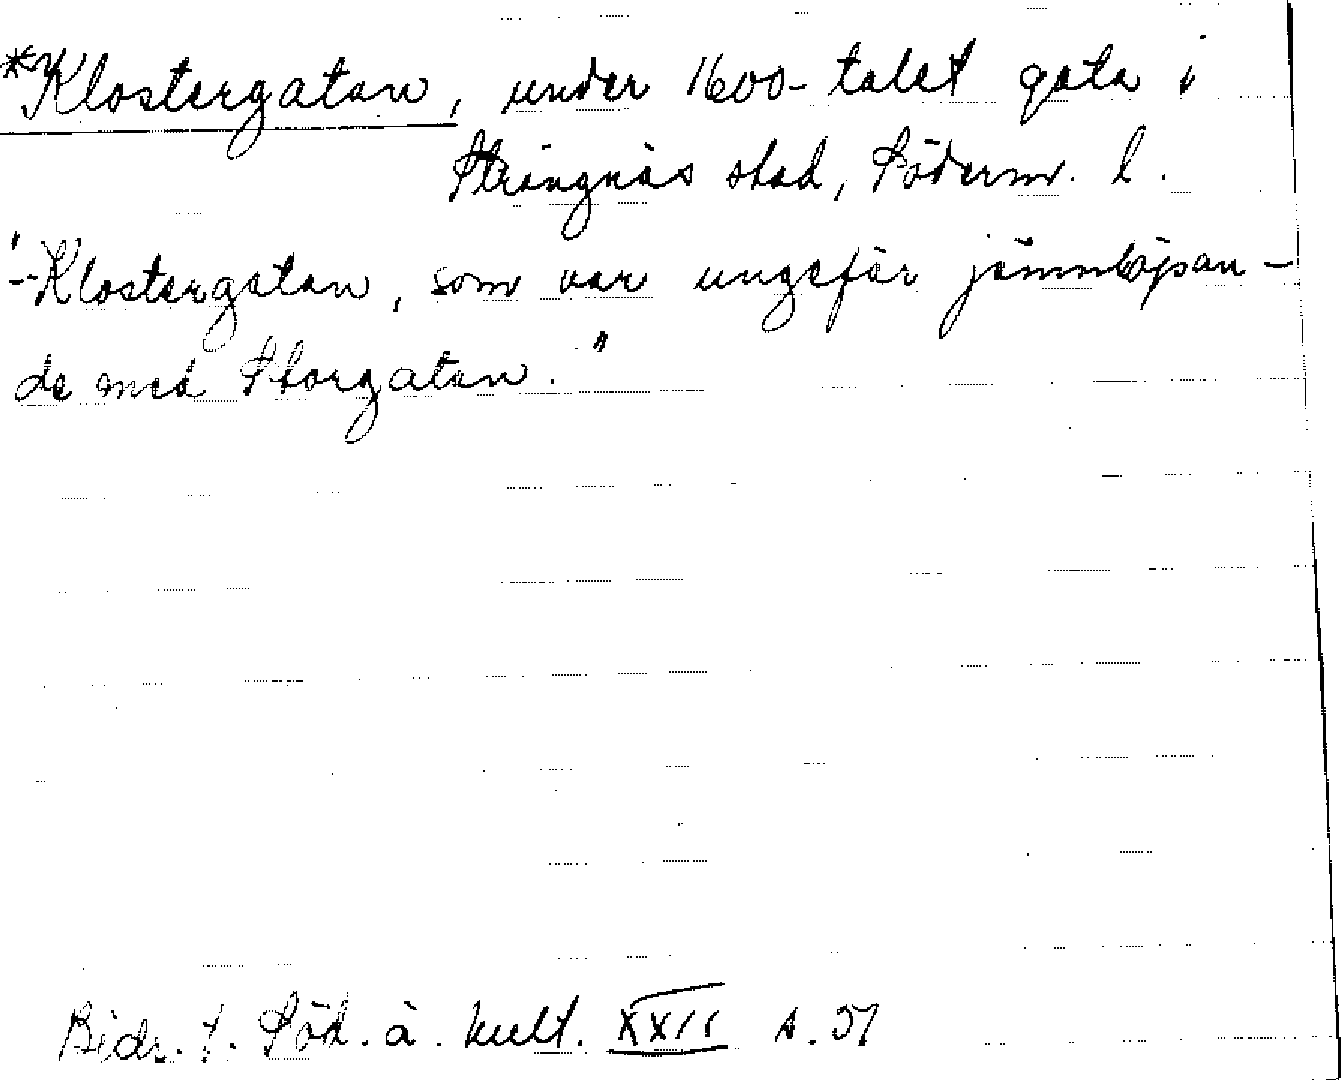 *Klostergatan, under 1600-talet gata i
Strängnäs stad, Söderm. l.
"--Klostergatan, som var ungefär jämnlöpan-
de med Storgatan."
Bidr. t. Söd. ä. kult. XXII s. 51